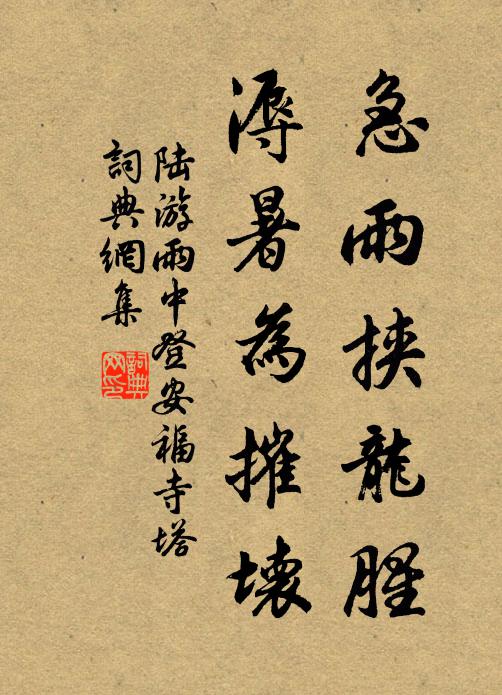 急雨挾龍腥
溽暑為摧壞
陸游雨中登安福寺塔
詞典網集
詞典网印